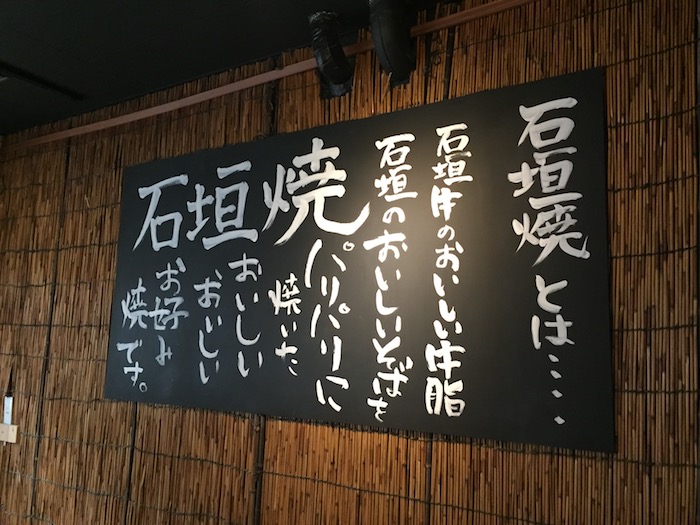 石垣焼とは・・・
石垣牛のおいしい牛脂
石垣のおいしいそばを
パリパリに
焼いた
おいしい
おいしい
お好み
焼です。
石垣焼